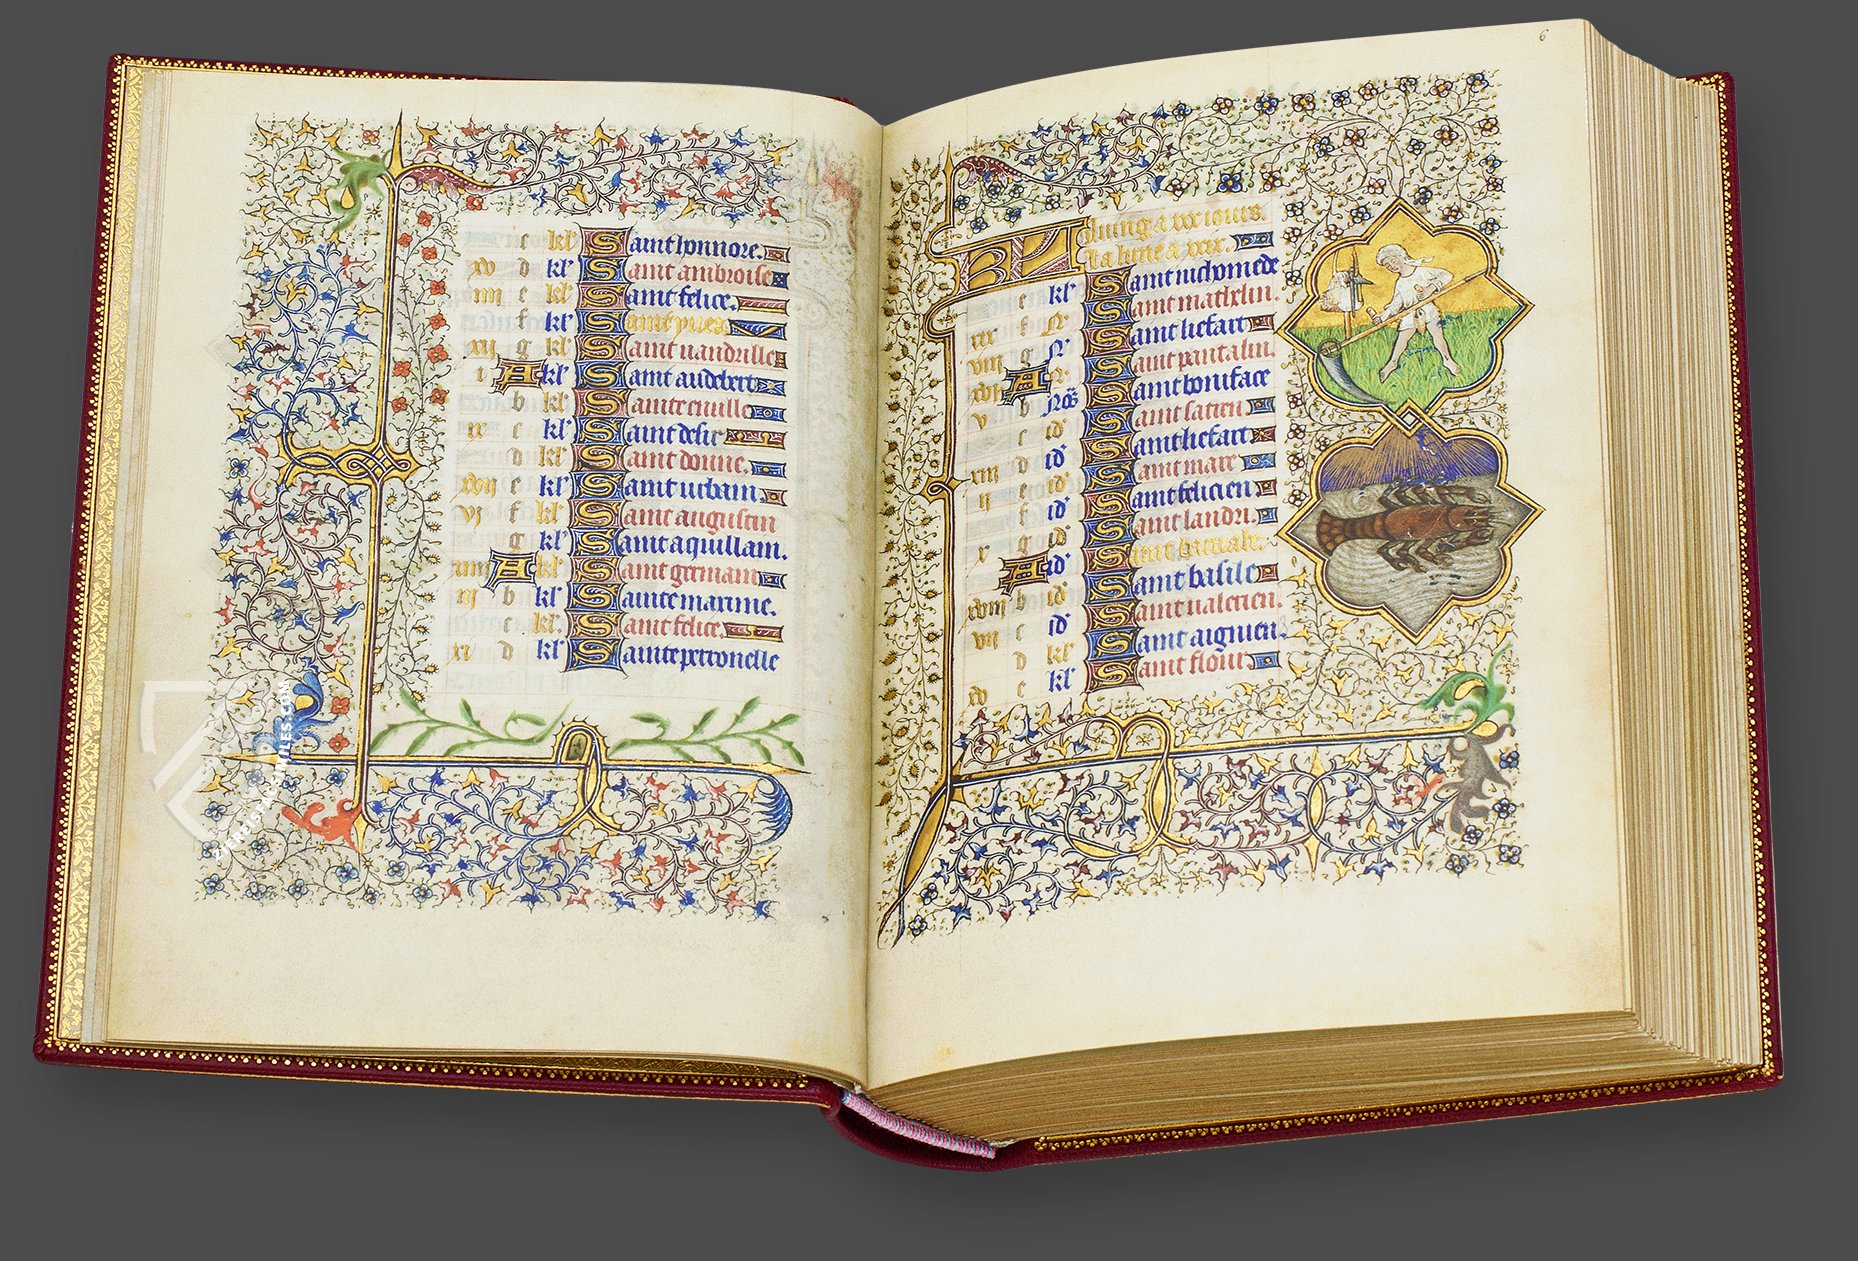 c kl' Saint honnore.
xv d kl' Saint ambroise
iiii e kl' Saint felice.
f kl' Saint yues.
xii g kl' Saint uandrille
i A kl' Saint audebert
b kl' Sainte
ix c kl' Saint desir
d kl' Saint donne.
xvii e kl' Saint urbain
vi f kl' Saint augustin
g kl' Saint aquillain.
xiiii A kl' Saint germain
iii b kl' Sainte maxime.
c kl' Saint felice.
xi d kl' Sainte perronelle
6
Juing a xxx iours.
La lune a xxix.
KL
e kl' Saint nichomede
xix f Saint mathelin.
viii g Saint liefart
xvi A Saint pantalin.
v b Saint boniface
c id' Saint
xiii d id' Saint liefart
ii e id' Saint marc
f id' Saint felicien
x g id' Saint landri.
A id' Saint barnabe.
xviii b id' Saint basile
vii c id' Saint ualerien.
d kl' Saint aignien.
xv e kl' Saint flour